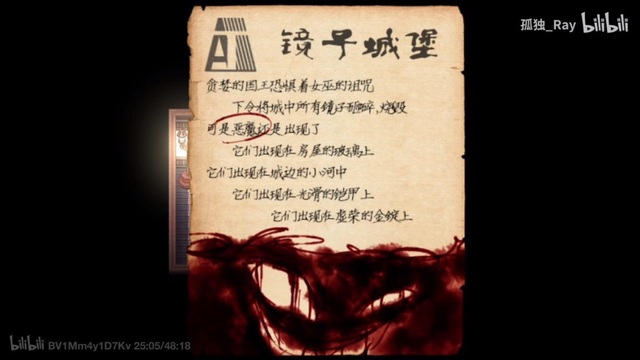 孤独_Ray bilibili
镜子城堡
贪婪的国王恐惧着女巫的诅咒
下令将城中所有镜子砸碎，烧毁
可是恶魔还是出现了
它们出现在房屋的玻璃上
它们出现在城边的小河中
它们出现在光滑的铠甲上
它们出现在虚荣的金锭上
bilibili BV1Mm4y1D7Kv 25:05/48:18